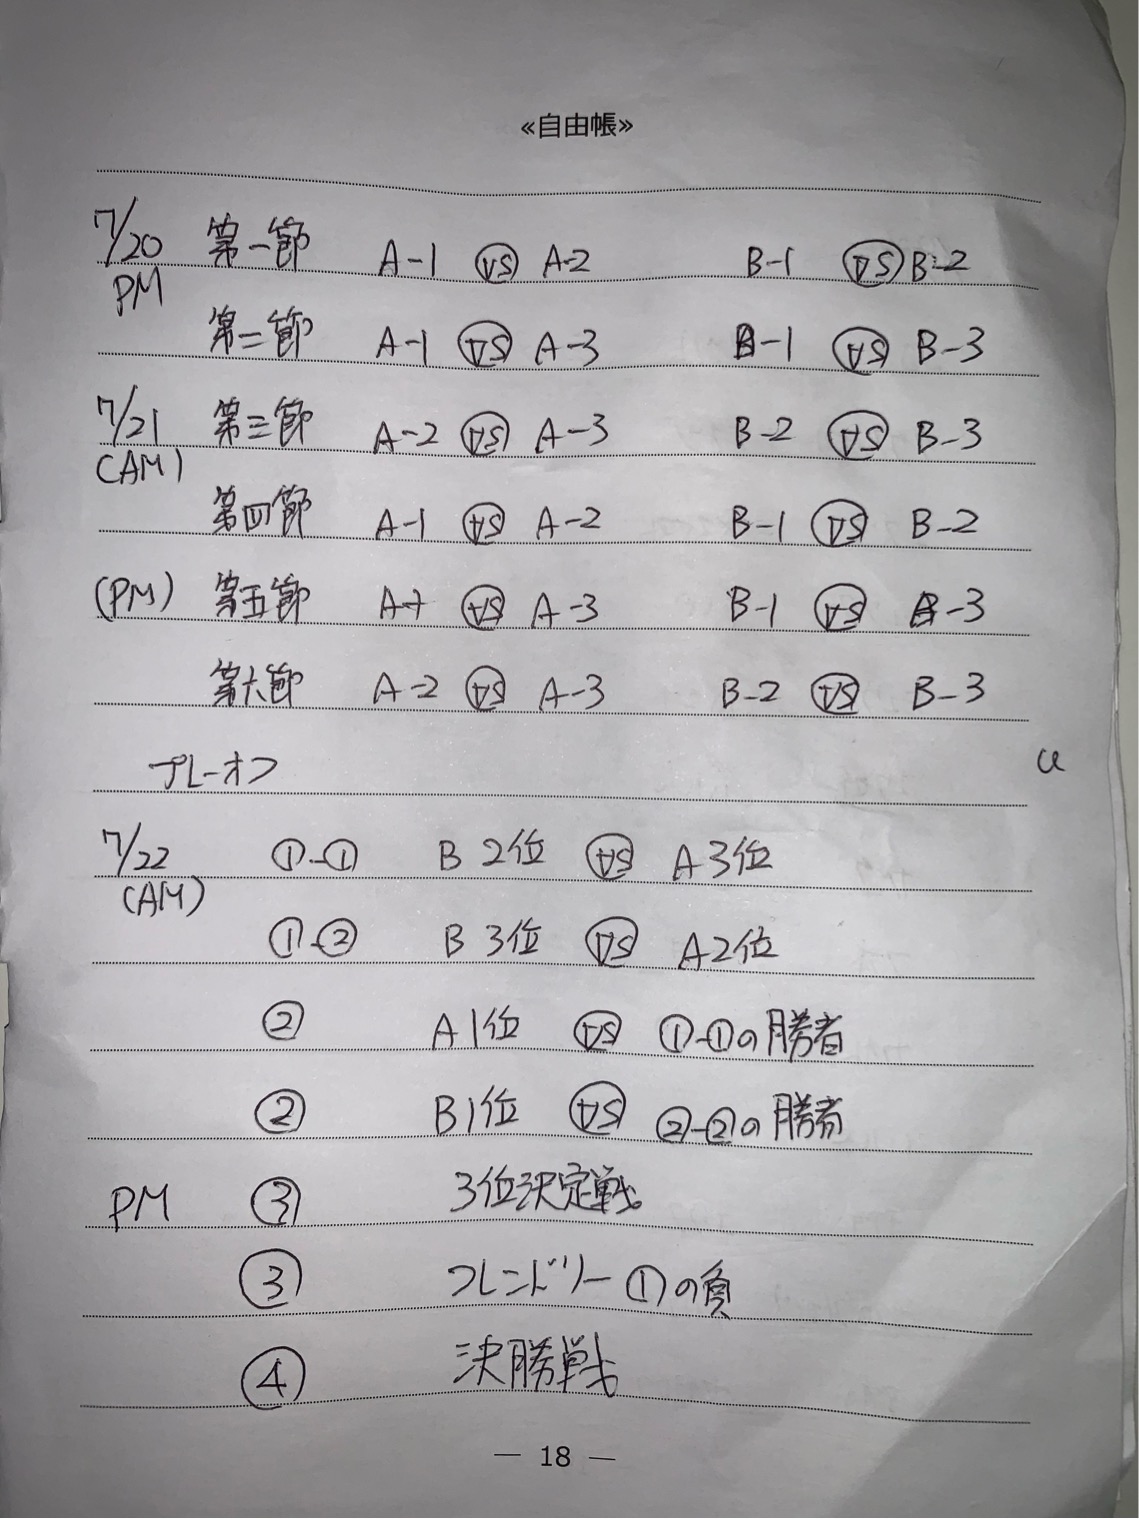 ≪自由帳≫
7/20 第一節 A-1 VS A-2 B-1 VS B-2
PM
第二節 A-1 VS A-3 B-1 VS B-3
7/21 第三節 A-2 VS A-3 B-2 VS B-3
(AM)
第四節 A-1 VS A-2 B-1 VS B-2
(PM) 第五節 A-1 VS A-3 B-1 VS B-3
第六節 A-2 VS A-3 B-2 VS B-3
プレーオフ
7/22 ①-① B 2位 VS A 3位
(AM)
①-② B 3位 VS A2位
② A1位 VS ①-①の勝者
② B1位 VS ②-②の勝者
PM ③ 3位決定戦
③ フレンドリー ①の負
④ 決勝戦
— 18 —